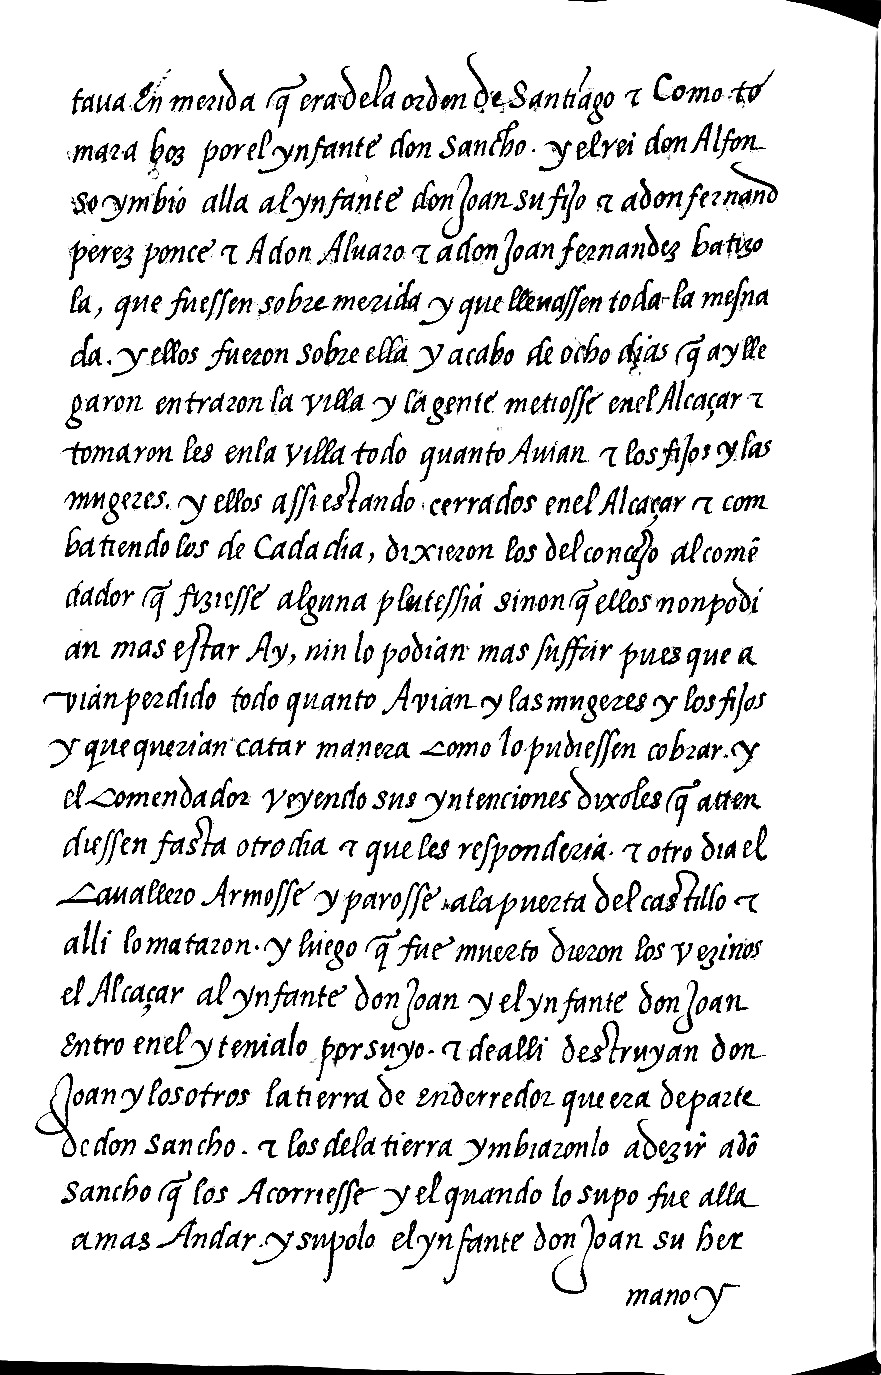 taua En merida q̃ era dela orden de Santiago τ Como to
mara boz por el ynfante don Sancho. y el rei don Alfon
so ymbio alla al ynfante don Joan su fijo τ a don fernand
perez ponce τ A don Aluaro τ a don Joan fernandez batizo
la, que fuessen sobre merida y que lleuassen toda la mesna
da. y ellos fueron sobre ella y acabo de ocho dias q̃ ay lle
garon entraron la villa y la gente metiosse enel Alcaçar τ
tomaron les enla villa todo quanto Auian τ los fijos y las
mugeres. y ellos assi estando cerrados enel Alcaçar τ com
batiendo los de Cada dia, dixieron los del concejo al comẽ
dador q̃ fiziesse alguna pleitessia sinon q̃ ellos non podi
an mas estar Ay, nin lo podian mas suffrir pues que a
vian perdido todo quanto Avian y las mugeres y los fijos
y que querian catar manera Como lo pudiessen cobrar. y
el Comendador veyendo sus yntenciones dixoles q̃ atten
diessen fasta otro dia τ que les responderia. τ otro dia el
Cauallero Armosse y parosse ala puerta del castillo τ
alli lo mataron. y luego q̃ fue muerto dieron los vezinos
el Alcaçar al ynfante don Joan y el ynfante don Joan
Entro enel y tenialo por suyo. τ de alli destruyan don
Joan y los otros la tierra de enderredor que era de parte
de don Sancho. τ los dela tierra ymbiaronlo a dezir a dõ
Sancho q̃ los Acorriesse y el quando lo supo fue alla
a mas Andar. y supolo el ynfante don Joan su her
mano y